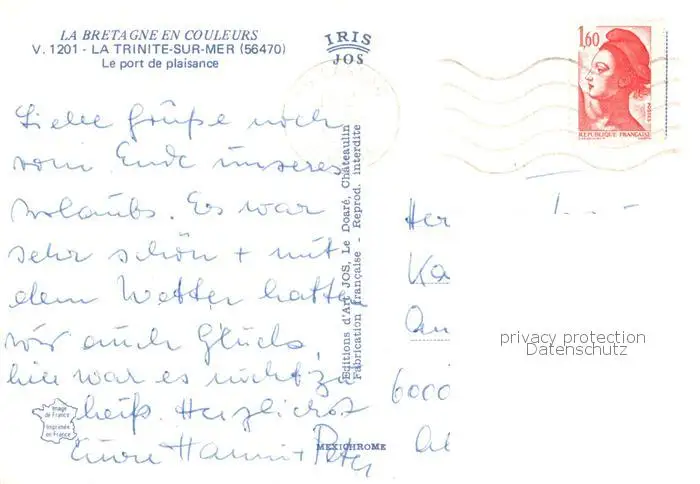 LA BRETAGNE EN COULEURS
V. 1201 - LA TRINITE-SUR-MER (56470)
Le port de plaisance
IRIS
JOS
1,60
POSTES
REPUBLIQUE FRANÇAISE
Liebe Grüße noch
vom Ende unseres
Urlaubs. Es war
sehr schön + mit
dem Wetter hatten
wir auch Glück,
hier war es nicht zu
heiß. Herzlichst
Eure Hanni + Peter
Editions d'Art JOS, Le Doaré, Châteaulin
Fabrication française - Reprod. interdite
Image
de France
Imprimée
en France
MEXICHROME
Her
Ka
6000
privacy protection
Datenschutz